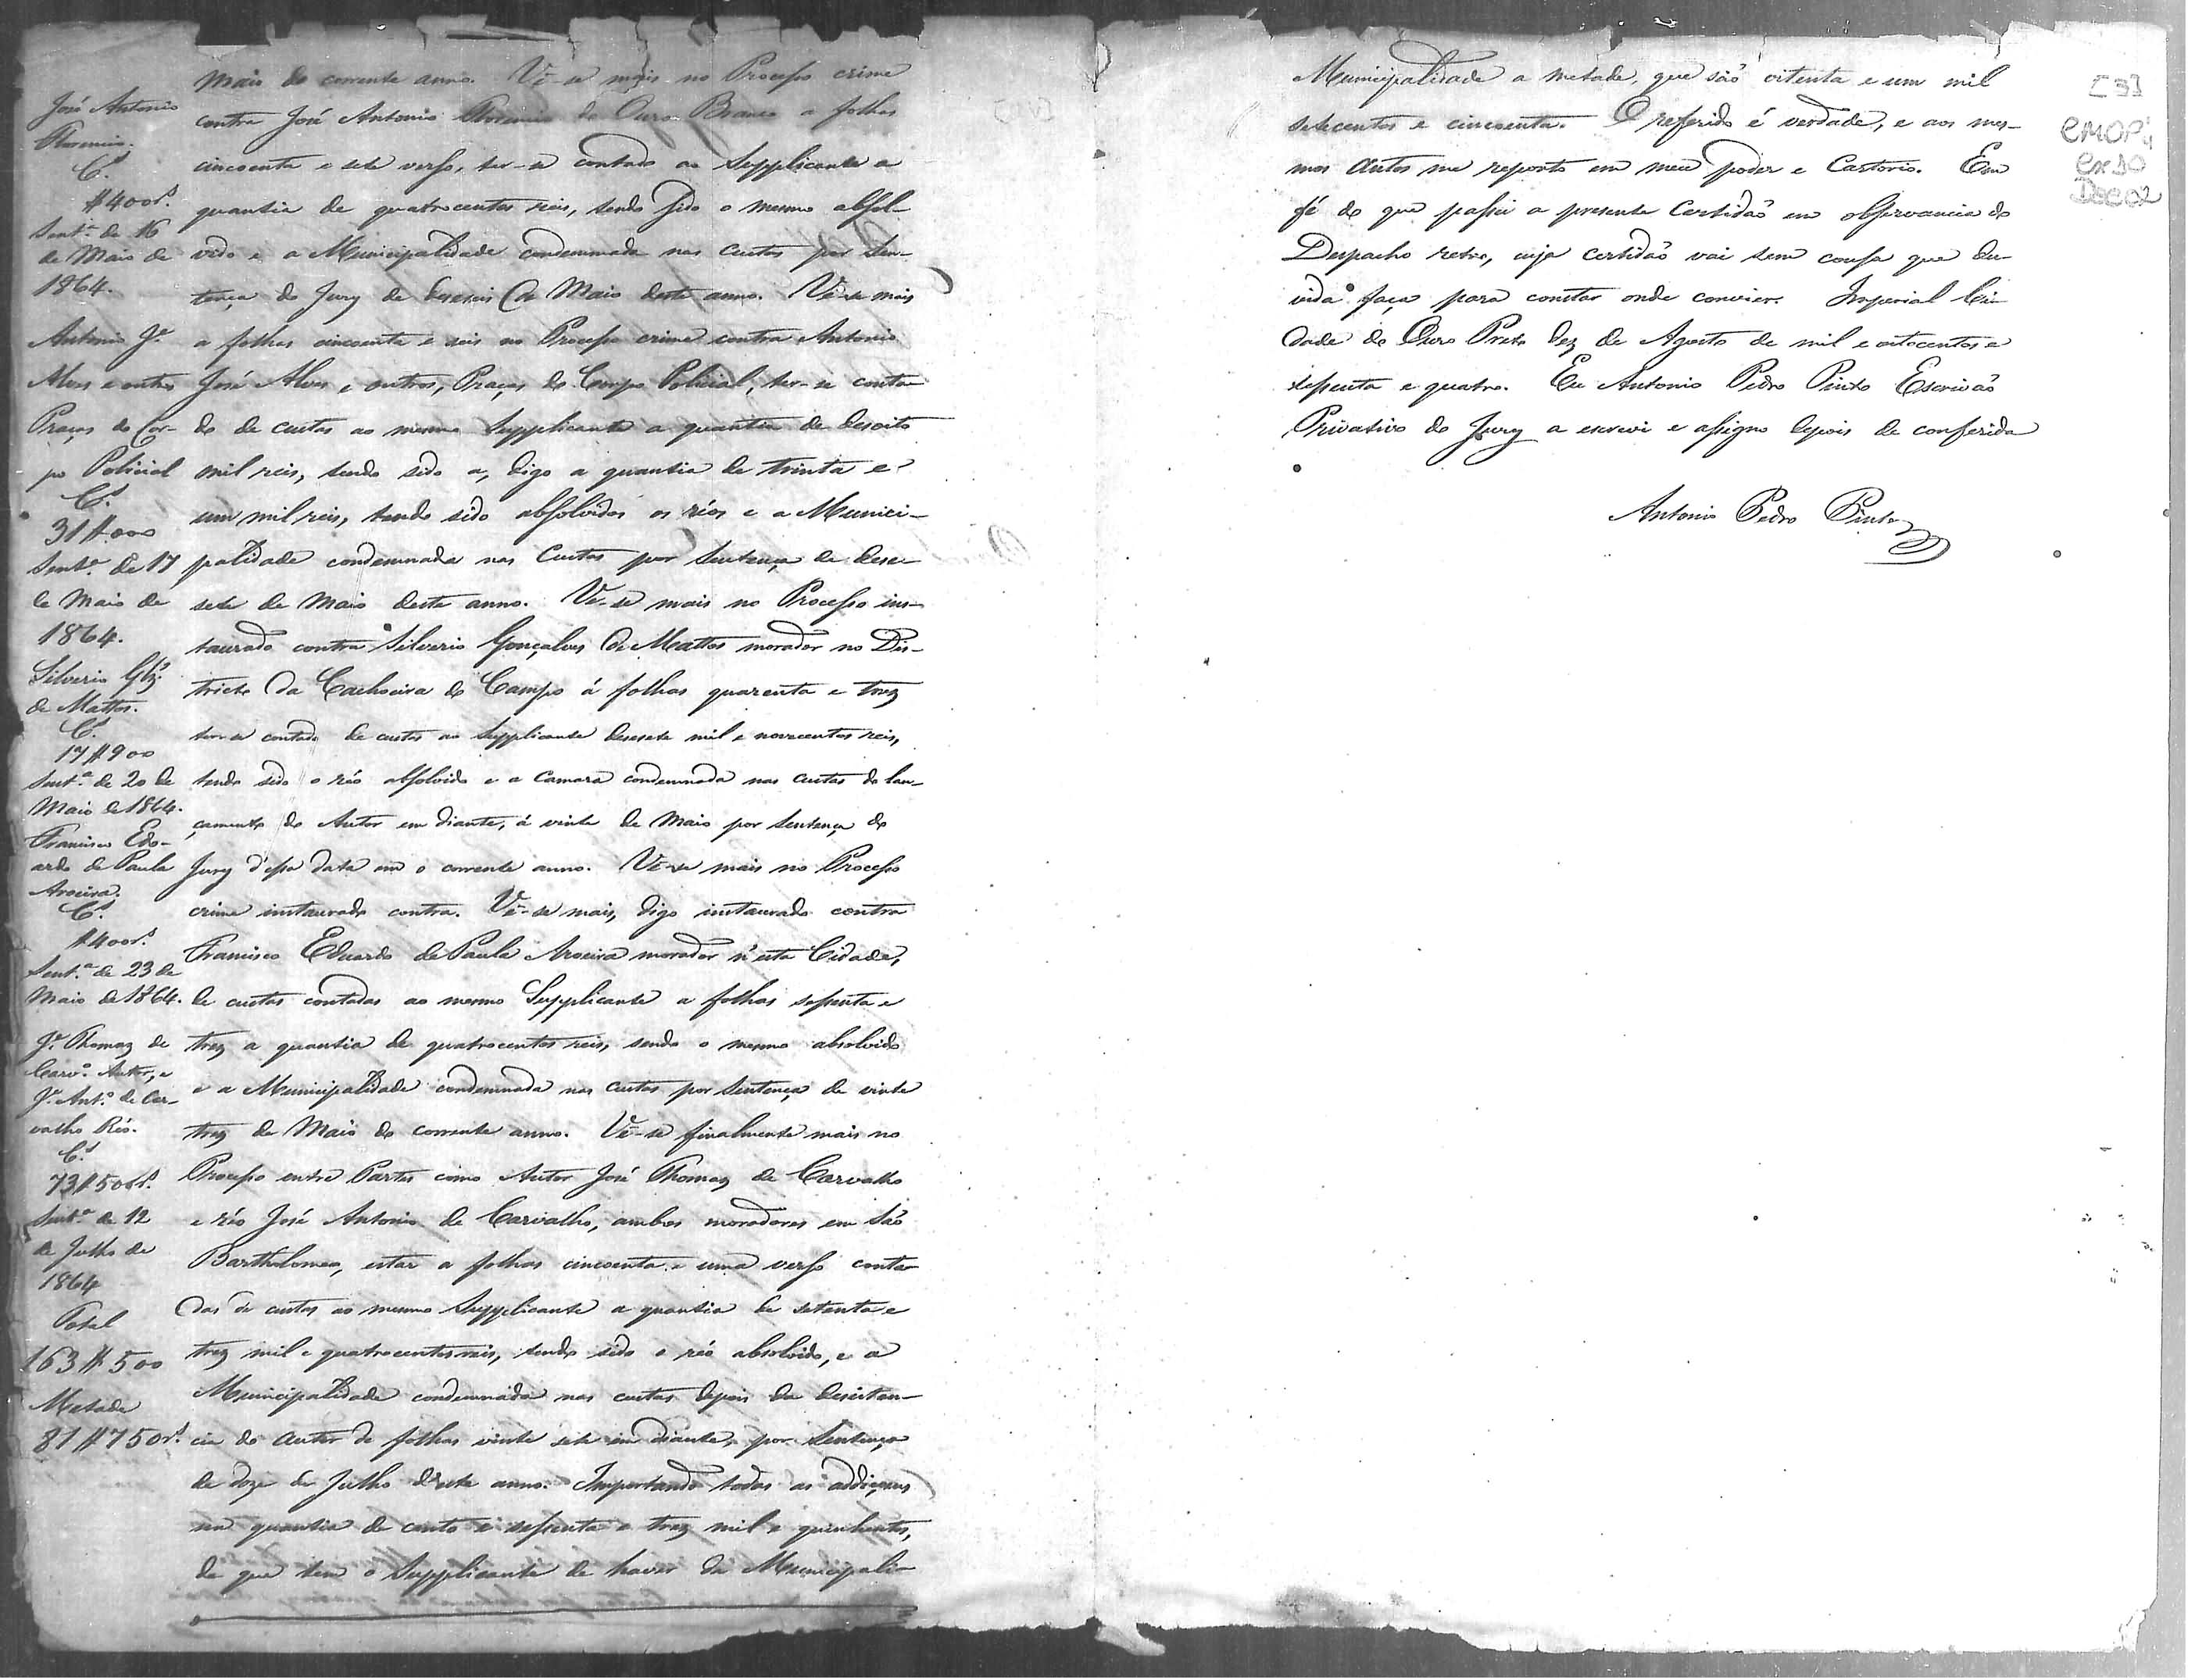 Maio do corrente anno. Vê-se mais no Processo crime
contra José Antonio Florencio do Ouro Branco a folhas
cincoenta e sete verso, ter-se contado ao Supplicante a
quantia de quatrocentos reis, sendo sido o mesmo absol-
vido e a Municipalidade condemnada nas custas por Sen-
tença do Jury de deseseis de Maio deste anno. Vê-se mais
a folhas cincoenta e seis no Processo crime contra Antonio
José Alves e outros, Praças do Corpo Policial, ter-se conta-
do de custas ao mesmo Supplicante a quantia de desoito
mil reis, tendo sido a, digo a quantia de trinta e
um mil reis, tendo sido absolvidos os réos e a Munici-
palidade condemnada nas Custas por Sentença de dese-
sete de Maio deste anno. Vê-se mais no Processo ins-
taurado contra Silverio Gonçalves de Mattos morador no Dis-
tricto da Cachoeira do Campo á folhas quarenta e trez
ter-se contado de custas ao Supplicante desesete mil e novecentos reis,
tendo sido o réo absolvido e a Camara condemnada nas custas do lan-
çamento do Autor em diante, á vinte de Maio por Sentença do
Jury d'essa data em o corrente anno. Vê-se mais no Processo
crime instaurado contra. Vê-se mais, digo instaurado contra
Francisco Eduardo de Paula Aroeira morador n'esta Cidade,
de custas contadas ao mesmo Supplicante a folhas sessenta e
trez a quantia de quatrocentos reis, sendo o mesmo absolvido
e a Municipalidade condemnada nas custas por Sentença de vinte
trez de Maio do corrente anno. Vê-se finalmente mais no
Processo entre Partes como Autor José Thomaz de Carvalho
e réo José Antonio de Carvalho, ambos moradores em São
Bartholomeo, estar a folhas cincoenta e uma verso conta-
das de custas ao mesmo Supplicante a quantia de setenta e
trez mil e quatrocentos reis, tendo sido o réo absolvido, e a
Municipalidade condemnada nas custas depois da desistan-
cia do Autor de folhas vinte sete em diante, por Sentença
de doze de Julho deste anno. Importando todas as addiçoens
na quantia de cento e sessenta e trez mil e quinhentos,
de que tem o Supplicante de haver da Municipali-
José Antonio
Florencio.
C.s
$400 r.s
Sent.a de 16
de Maio de
1864.
Antonio J.e
Alves e outros
Praças do Cor-
po Policial
C.s
31$000
Sent.a de 17
de Maio de
1864.
Silverio Glz.
de Mattos.
C.s
17$900
Sent.a de 20 de
Maio de 1864.
Francisco Edu-
ardo de Paula
Aroeira.
C.s
$400 r.s
Sent.a de 23 de
Maio de 1864.
J.e Thomaz de
Carv.o Autor, e
J.e Ant.o de Car-
valho Réo.
C.s
73$500 r.s
Sent.a de 12
de Julho de
1864
Total
163$500
Metade
81$750 r.s
Municipalidade a metade, que são oitenta e um mil
setecentos e cincoenta. O referido é verdade, e aos mes-
mos autos me reporto em meu poder e Cartorio. Em
fé do que passei a presente Certidão em observancia do
Despacho retro, cuja certidão vai sem cousa que du-
vida faça para constar onde convier. Imperial Ci-
dade do Ouro Preto dez de Agosto de mil e oitocentos e
sessenta e quatro. Eu Antonio Pedro Pinto Escrivão
Privativo do Jury a escrevi e assigno depois de conferida
Antonio Pedro Pinto
[3]
CMOP
CX 10
Doc 02